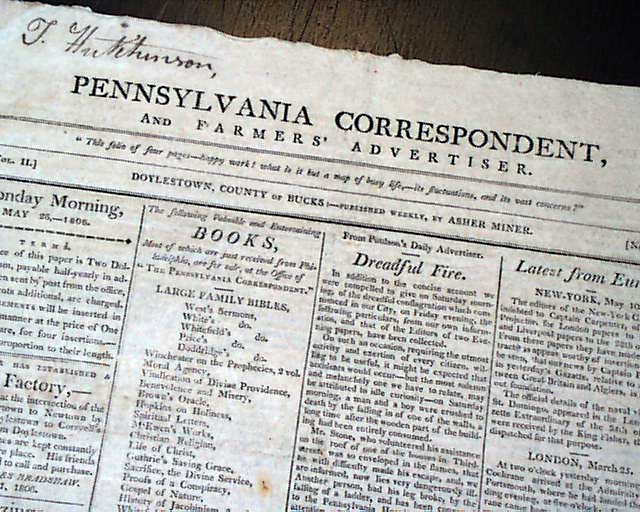 T. Hutchinson,
PENNSYLVANIA CORRESPONDENT,
AND FARMERS' ADVERTISER.
"This folio of four pages—happy work! what is it but a map of busy life,—its fluctuations, and its vast concerns?"
OL. II.]
DOYLESTOWN, COUNTY OF BUCKS:—PUBLISHED WEEKLY, BY ASHER MINER.
onday Morning,
MAY 26,—1806.
TERMS.
ce of this paper is Two Dol-
um, payable half-yearly in ad-
sent by post from the office,
nts additional, are charged.
EMENTS will be inserted in
mner at the price of One
are, for four insertions,—
proportion to their length.
HAS ESTABLISHED A
Factory,—
at the intersection of the
own to Newtown
lestown to Coryell's
m Doylestown.
es are kept constantly
e place. His friends
to call and purchase.
ES BRADSHAW.
1806.
The following Valuable and Entertaining
BOOKS,
Most of which are just received from Phi-
ladelphia, are for sale, at the Office of
"THE PENNSYLVANIA CORRESPONDENT."
LARGE FAMILY BIBLES,
West's Sermons,
White's do. do.
Whitefield's do.
Price's do. do.
Doddridge's do.
Winchester on the Prophecies, 2 vol.
Moral Agency,
Vindication of Divine Providence,
Benevolence and Misery,
Brown's Oracle,
Hopkins on Holiness,
Spiritual Letters,
M'Ewen's Works,
Christian Religion,
Life of Christ,
Guthrie's Saving Grace,
Sacrifice, the Divine Service,
Proofs of a Conspiracy,
Gospel of Nature,
History of Jacobinism
From Poulson's Daily Advertiser.
Dreadful Fire.
In addition to the concise account we
were compelled to give on Saturday morn-
ing of the dreadful conflagration which com-
menced in our City, on Friday evening, the
following particulars, from our own informa-
tion, and that of the Editors of two Eve-
ning Papers, have been collected.
On such an occasion, requiring the utmost
activity and exertion of every citizen, wil-
ling to be useful, it might be feared that
accidents would occur—but the most sad
and unfortunately one we have to relate, may
be attributed to idle curiosity—on Saturday
morning, a man and a boy were crushed to
death by the falling in of one of the walls, a
long time after the wooden part of the build-
ing had been entirely consumed.
Mr. Stone, who volunteered his assistance
on the roof of one of the houses in Third-
street, was so enveloped in the flames, that he
with difficulty made his escape, and, we
are informed, now lies very dangerously ill.
Another had his leg broke, by the
falling of a ladder, and has been conveyed
to the Pennsylvania
Latest from Eu
NEW-YORK, May
The editors of the New-York
indebted to Captain Carpenter,
cester, for London papers to
and Liverpool papers to the 28th
From these papers we have made
such as appear worthy of insertion
be seen, by an article
in yesterday's Gazette, relative to
tween Great-Britain and
not founded.
The official details of the naval
St. Domingo, appears in the
zette Extraordinary of the 24th
were received by the King Fisher,
dispatched for that purpose.
LONDON, March 25.
At two o'clock yesterday morning
Cochrane arrived at the Admiralty
Portsmouth, where he had landed
ding evening, at five o'clock,